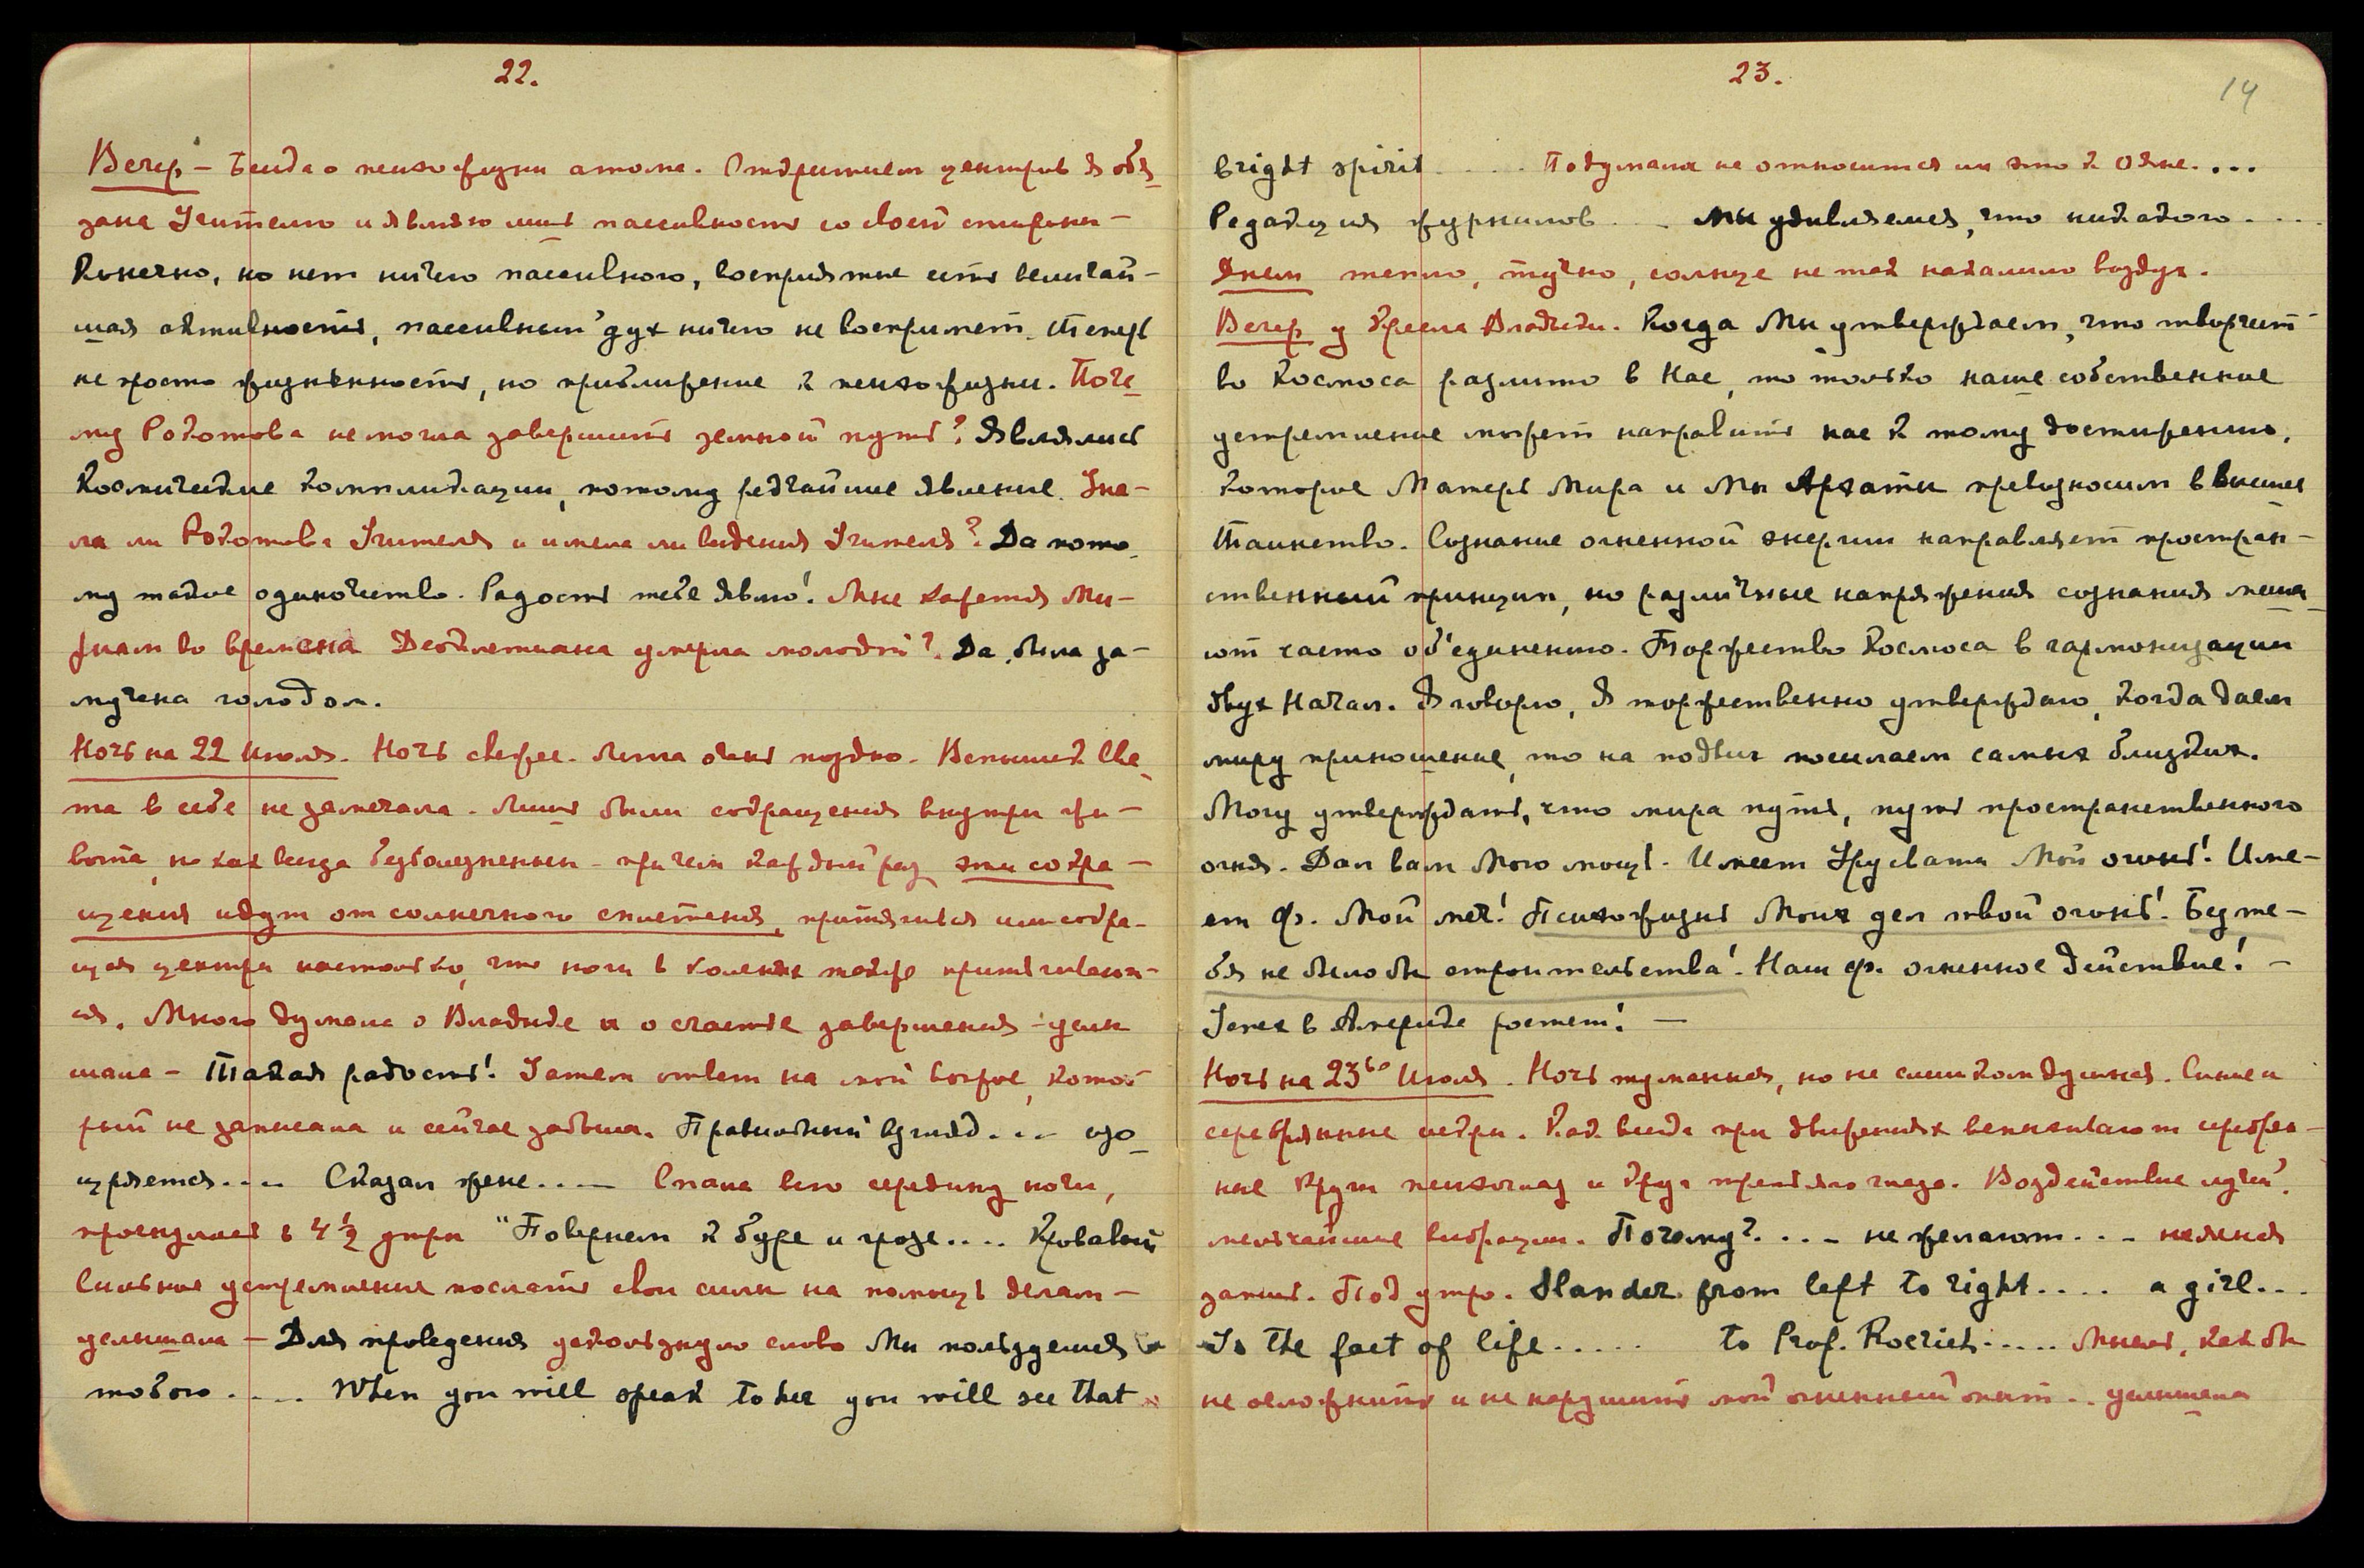 22.
Вечер – Беседа о психожизни атома. Открытием центров я обя-
зана Учителю и являю лишь пассивность со своей стороны –
Конечно, но нет ничего пассивного, восприятие есть величай-
шая активность, пассивный дух ничего не воспримет. Теперь
не просто жизненность, но приближение к психожизни. Поче-
му Рокотова не могла завершить земной путь? Являлись
Космические компликации, потому редчайшие явление. Зна-
ла ли Рокотова Учителя и имела ли видения Учителя? Да пото-
му такое одиночество. Радость тебе явлю! Мне кажется Ми-
риам во времена Деоклетиана умерла молодой? Да, была за-
мучена голодом.
Ночь на 22 Июля. Ночь свежее. Легла очень поздно. Вспышек Све-
та в себе не замечала. Лишь были сокращения внутри жи-
вота, но как всегда безболезненны – причем каждый раз эти сокра-
щения идут от солнечного сплетения, притягивая или сокра-
щая центры настолько, что ноги в коленях также притягивают-
ся. Много думала о Владыке и о счастье завершения – услы
шала – Такая радость! Затем ответ на мой вопрос, кото-
рый не записала и сейчас забыла. Правильный взгляд... изо-
щряется.... Сказал жене.... Спала всю середину ночи,
проснулась в 4 ½ утра "Повернем к буре и грозе.... Кровавый
Сильное устремление послать свои силы на помощь делам –
услышала – Для проведения ускользнуло слово Мы пользуемся
тобою.... When you will speak to her you will see that
23.
14
bright spirit..... Подумала не относится ли это к Ояне....
Редакция журналов.... Мы удивляемся, что никакого....
Днем тепло, тучно, солнце не так накалило воздух.
Вечер у Кресла Владыки. Когда Мы утверждаем, что творчест-
во Космоса разлито в Нас, то только наше собственное
устремление может направить нас к тому достижению,
которое Матерь Мира и Мы Архаты превозносим в высшее
Таинство. Сознание огненной энергии направляет простран-
ственный принцип, но различные напряжения сознания меша-
ют часто об'единению. Торжество Космоса в гармонизации
двух Начал. Я говорю, Я торжественно утверждаю, когда даем
миру приношение, то на подвиг посылаем самых близких.
Могу утверждать, что мира путь, путь пространственного
огня. Дал вам Мою мощь. Имеет Урусвати Мой огонь! Име-
ет Ф. Мой меч! Психожизнь Моих дел твой огонь! Без те-
бя не было бы строительства! Наш Ф. огненное действие! –
Успех в Америке ростет! –
Ночь на 23ью Июля. Ночь туманная, но не слишком душная. Синие и
серебрянные искры. Как всегда при движениях вспыхивают серебрян-
ные круги психоглаз и круг третьяго глаза. Воздействие лучей,
мельчайшие вибрации. Почему?.... не желают.... неясная
запись. Под утро. Slander from left to right.... a girl...
Is the fact of life..... to Prof. Roerich..... Мысль, как бы
не осложнить и не нарушить мой огненный опыт.. услышала